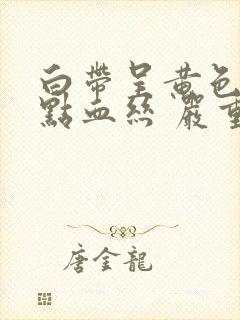 白帶呈黃色
點血丝 嚴重
唐金龍